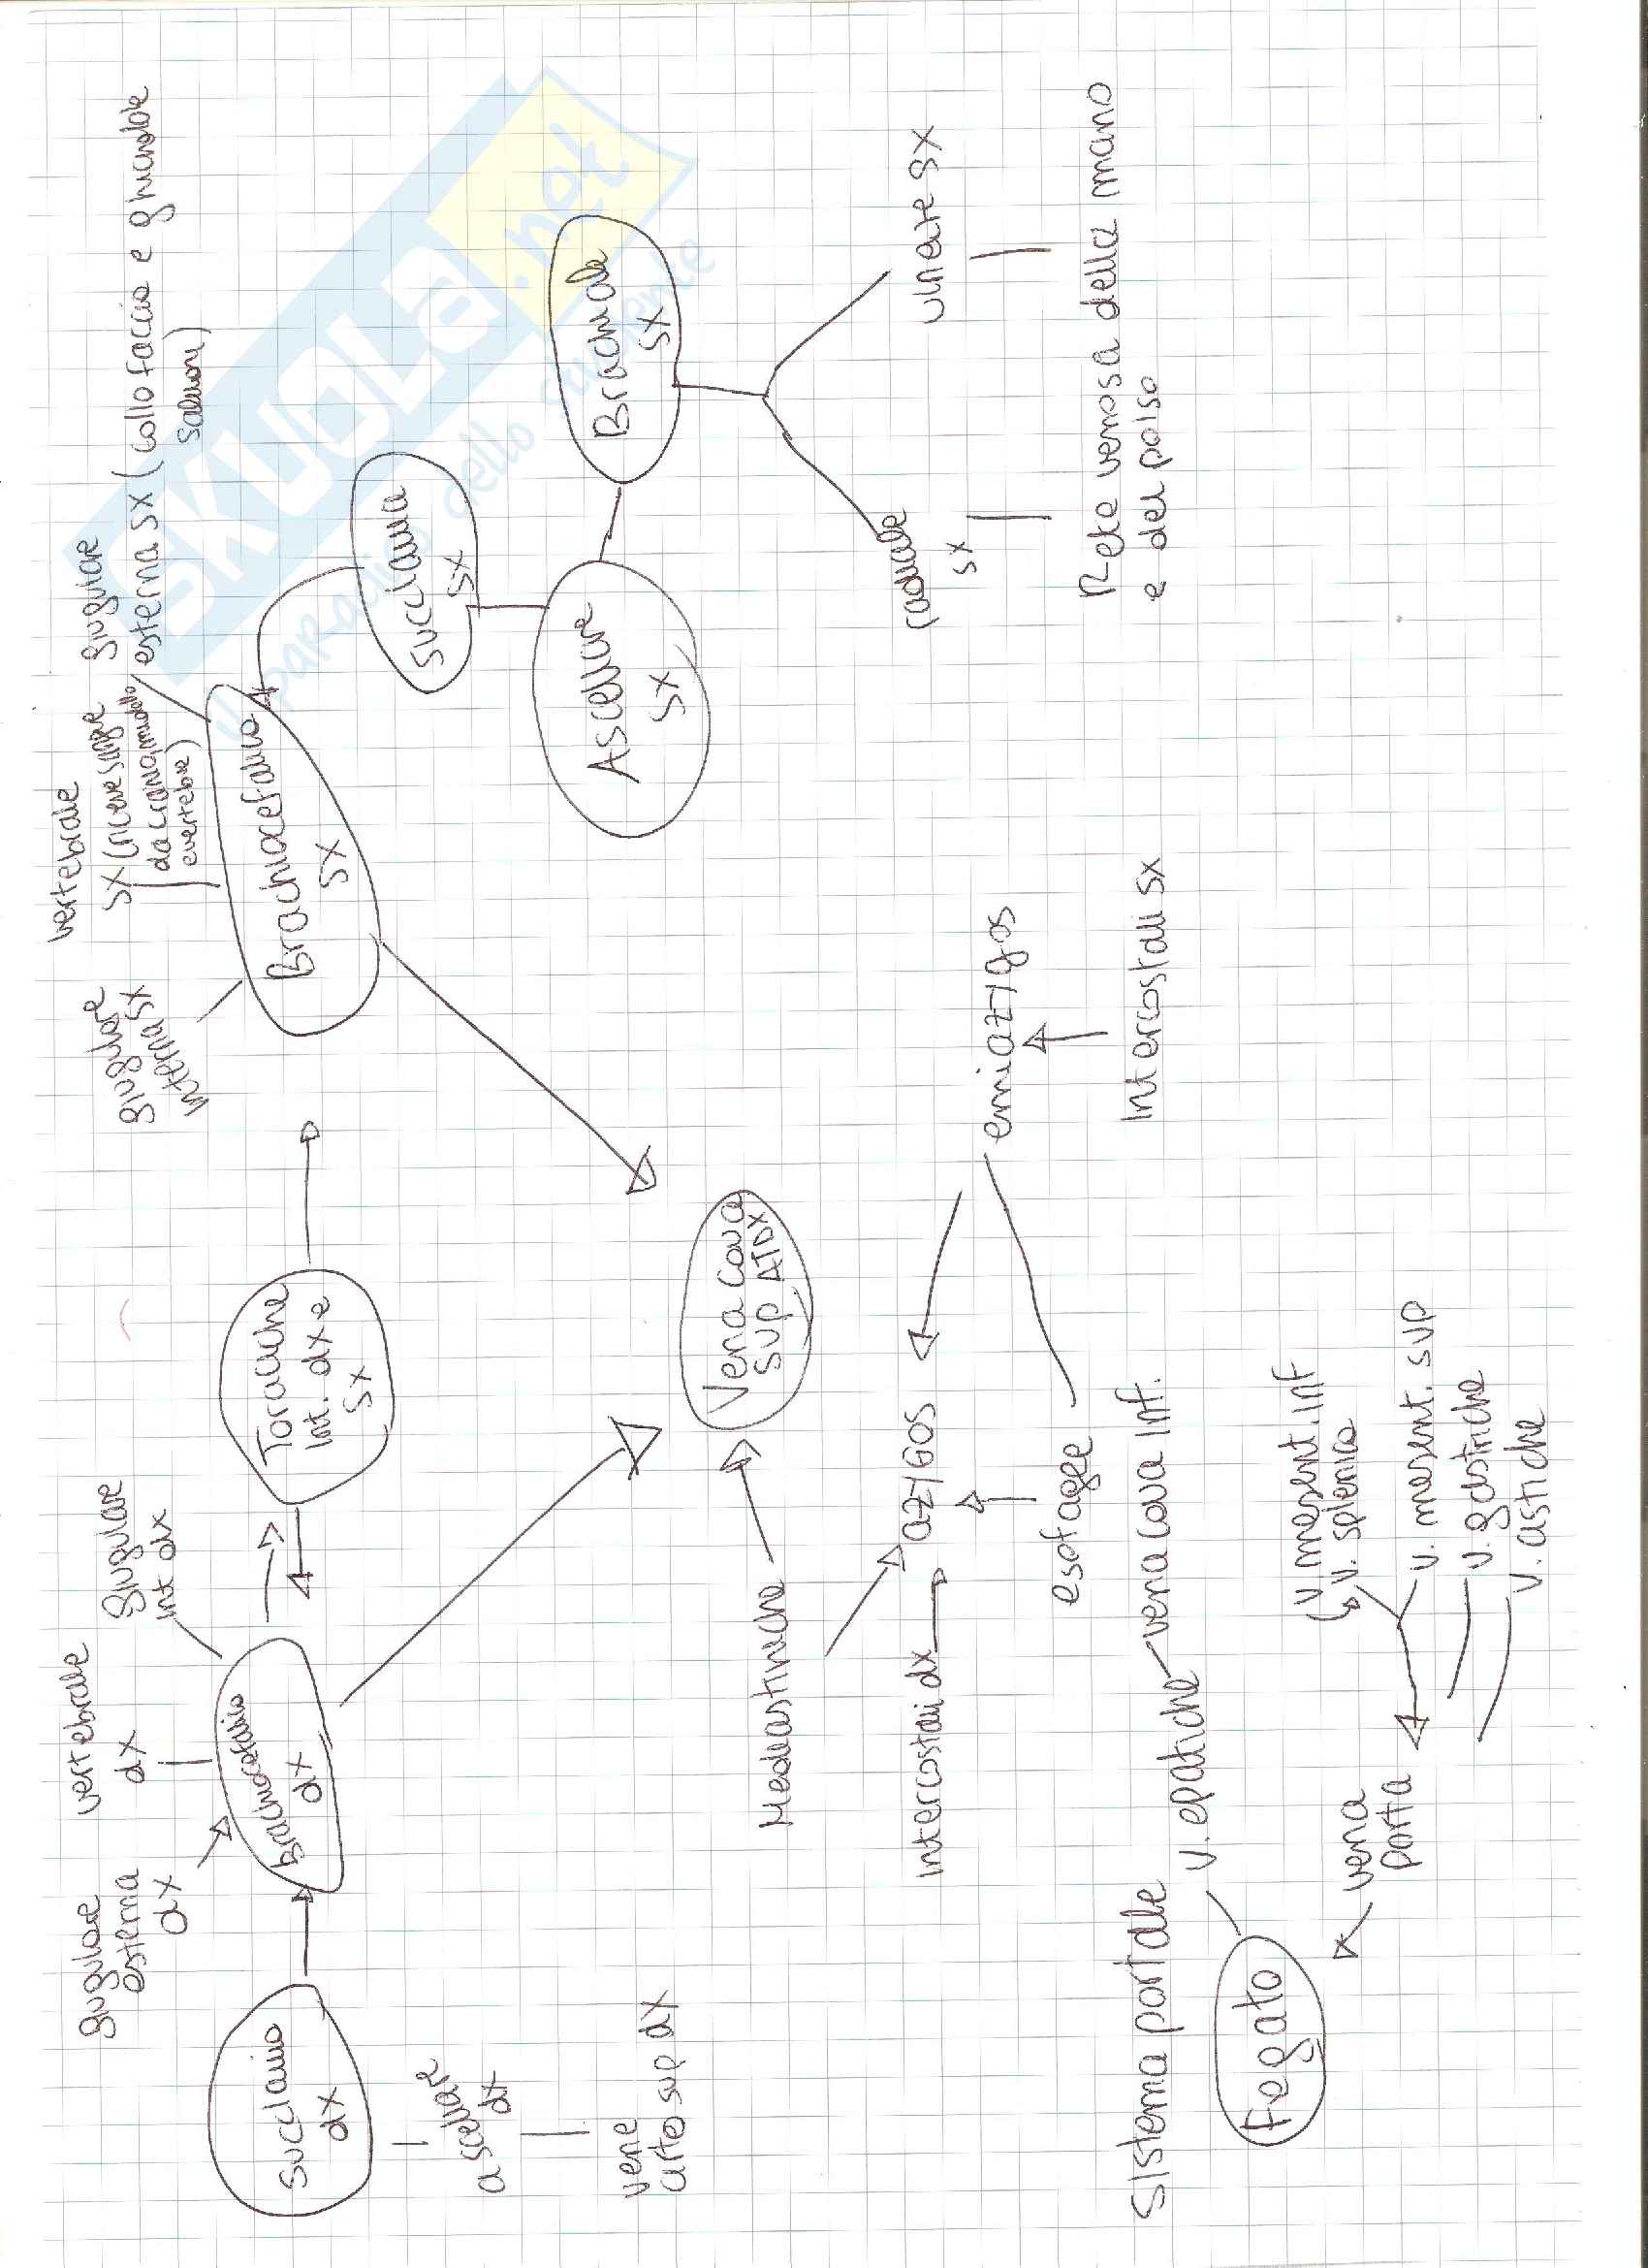 giugulare
esterna
dx
vertebrale
dx
giugulare
int dx
giugulare
interna sx
vertebrale
sx (riceve sangue
da cranio, midollo
e vertebre)
giugulare
esterna sx (collo faccia e ghiandole
salivari)
succlavia
dx
brachiocefalica
dx
Toraciche
int. dx e
sx
Brachiocefalica
sx
succlavia
sx
ascellare
dx
vene
arto sup dx
Ascellare
sx
Brachiale
sx
radiale
sx
ulnare sx
Rete venosa della mano
e del polso
Vena cava
sup ATDX
Mediastiniche
intercostali dx
azygos
emiazygos
esofagee
Intercostali sx
Sistema portale
fegato
v. epatiche
vena cava inf.
vena
porta
v. mesent. inf
v. splenica
v. mesent. sup
v. gastriche
v. cistiche
SKUOLA.net
il paradiso dello studente